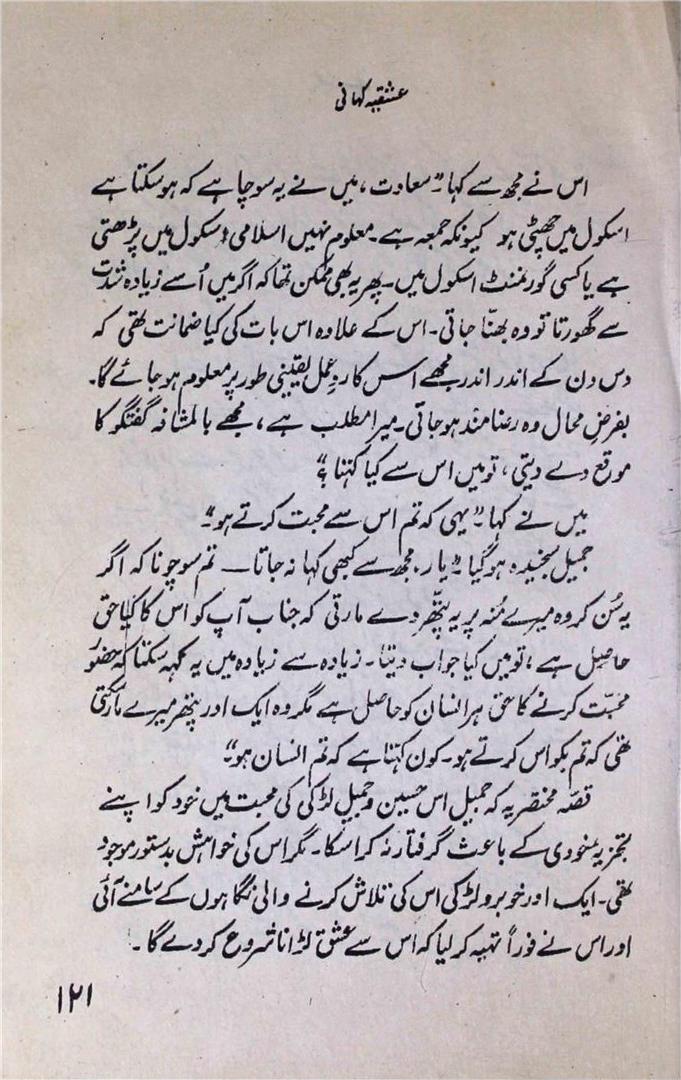 عشقیہ کہانی
اس نے مجھ سے کہا "سعادت، میں نے یہ سوچا ہے کہ ہو سکتا ہے
اسکول میں چھٹی ہو کیونکہ جمعہ ہے۔ معلوم نہیں اسلامی اسکول میں پڑھتی
ہے یا کسی گورنمنٹ اسکول میں۔ پھر یہ بھی ممکن تھا کہ اگر میں اُسے زیادہ شدت
سے گھورتا تو وہ بھنّا جاتی۔ اس کے علاوہ اس بات کی کیا ضمانت تھی کہ
دس دن کے اندر اندر مجھے اس کا ردِعمل یقینی طور پر معلوم ہو جائے گا۔
بفرضِ محال وہ رضامند ہو جاتی۔ میرا مطلب ہے، مجھے بالمشافہ گفتگو کا
موقع دے دیتی، تو میں اس سے کیا کہتا؟"
میں نے کہا۔ "یہی کہ تم اس سے محبت کرتے ہو"۔
جمیل سنجیدہ ہو گیا "یار، مجھ سے کبھی کہا نہ جاتا — تم سوچو نا کہ اگر
یہ سُن کر وہ میرے مُنہ پر یہ پتھّر دے مارتی کہ جناب آپ کو اس کا کیا حق
حاصل ہے، تو میں کیا جواب دیتا۔ زیادہ سے زیادہ میں یہ کہہ سکتا کہ حضور
محبّت کرنے کا حق ہر انسان کو حاصل ہے مگر وہ ایک اور پتھر میرے مار سکتی
تھی کہ تم بکواس کرتے ہو۔ کون کہتا ہے کہ تم انسان ہو"۔
قصّہ مختصر یہ کہ جمیل اس حسین و جمیل لڑکی کی محبت میں خود کو اپنے
تجزیہ خودی کے باعث گرفتار نہ کرا سکا۔ مگر اس کی خواہش بدستور موجود
تھی۔ ایک اور خوبرو لڑکی اس کی تلاش کرنے والی نگاہوں کے سامنے آئی
اور اس نے فوراً تہیہ کر لیا کہ اس سے عشق لڑانا شروع کر دے گا۔
۱۲۱